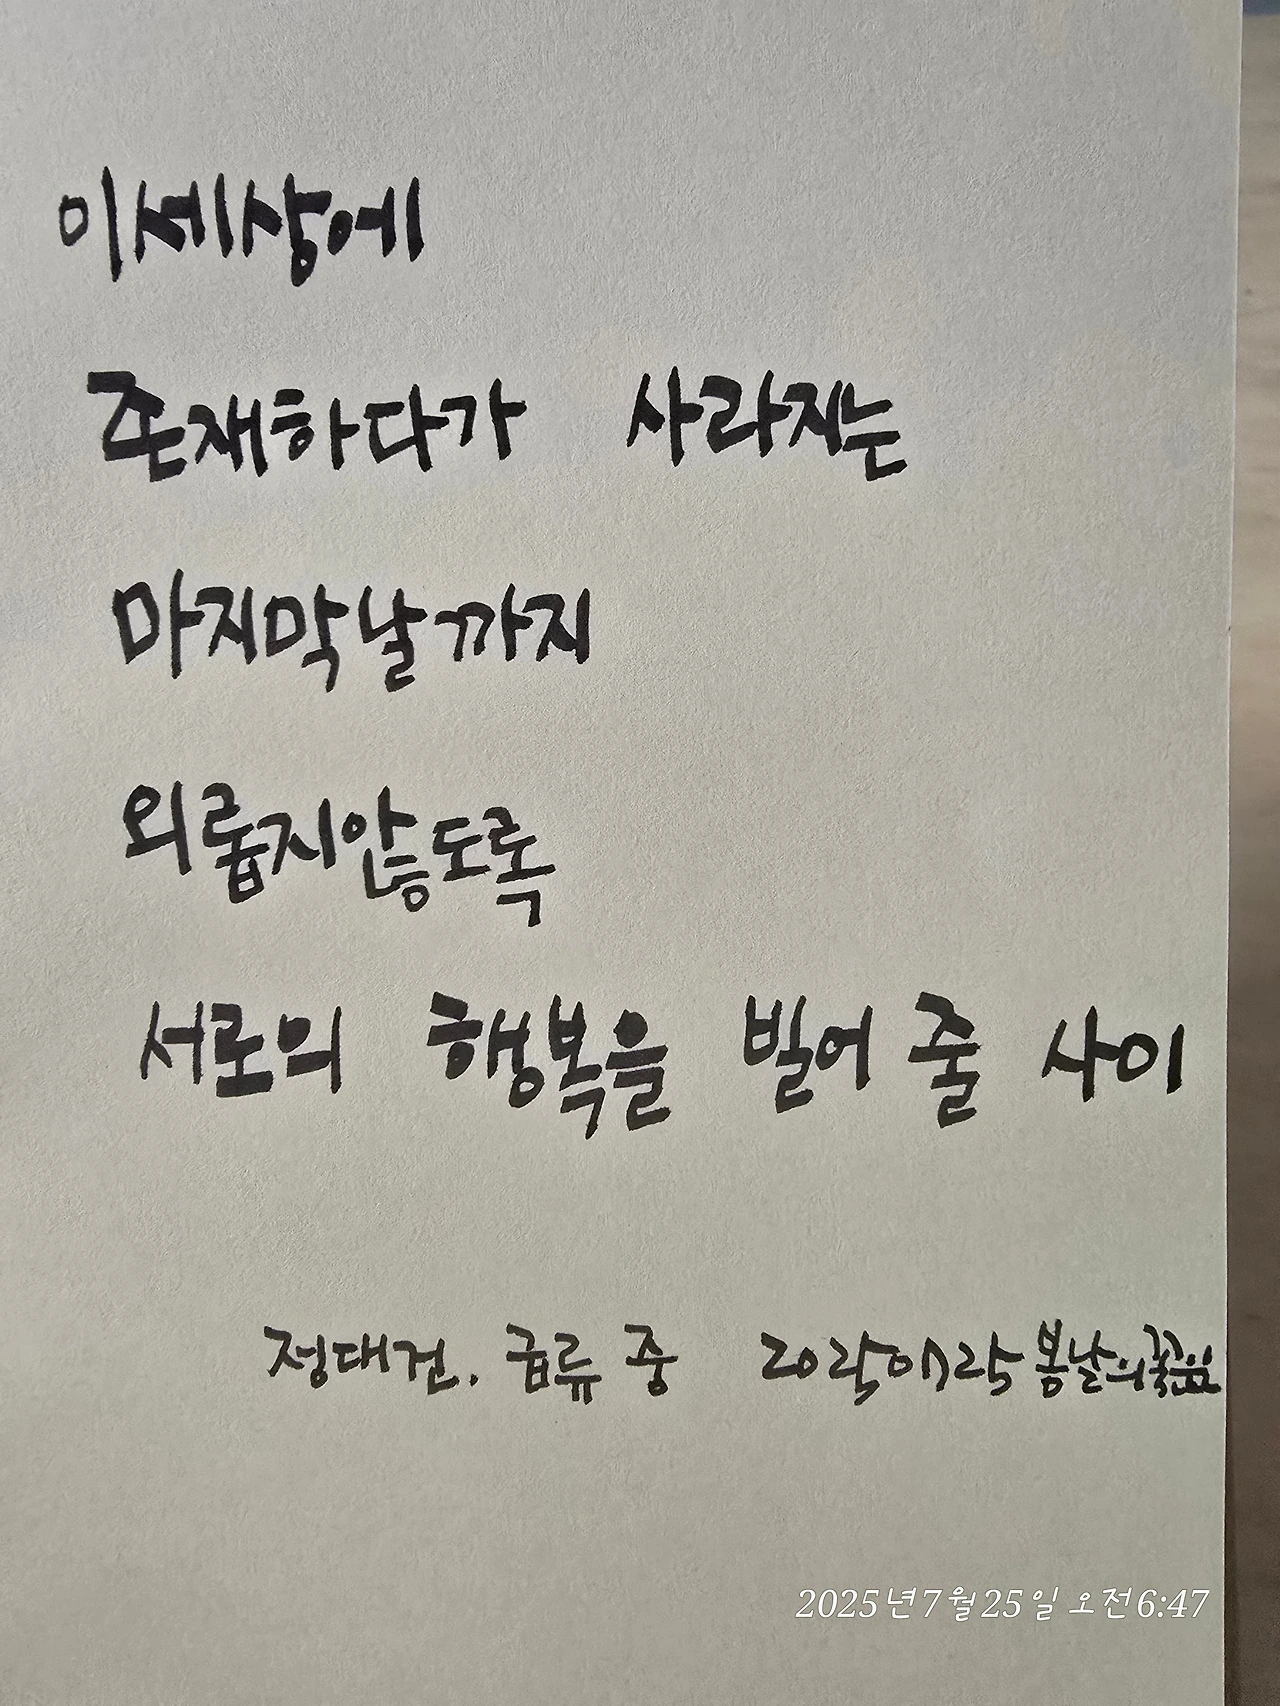 이세상에
존재하다가 사라지는
마지막날까지
외롭지않도록
서로의 행복을 빌어 줄 사이
정대건. 급류 중 봄날의
2025년7월25일 오전6:47